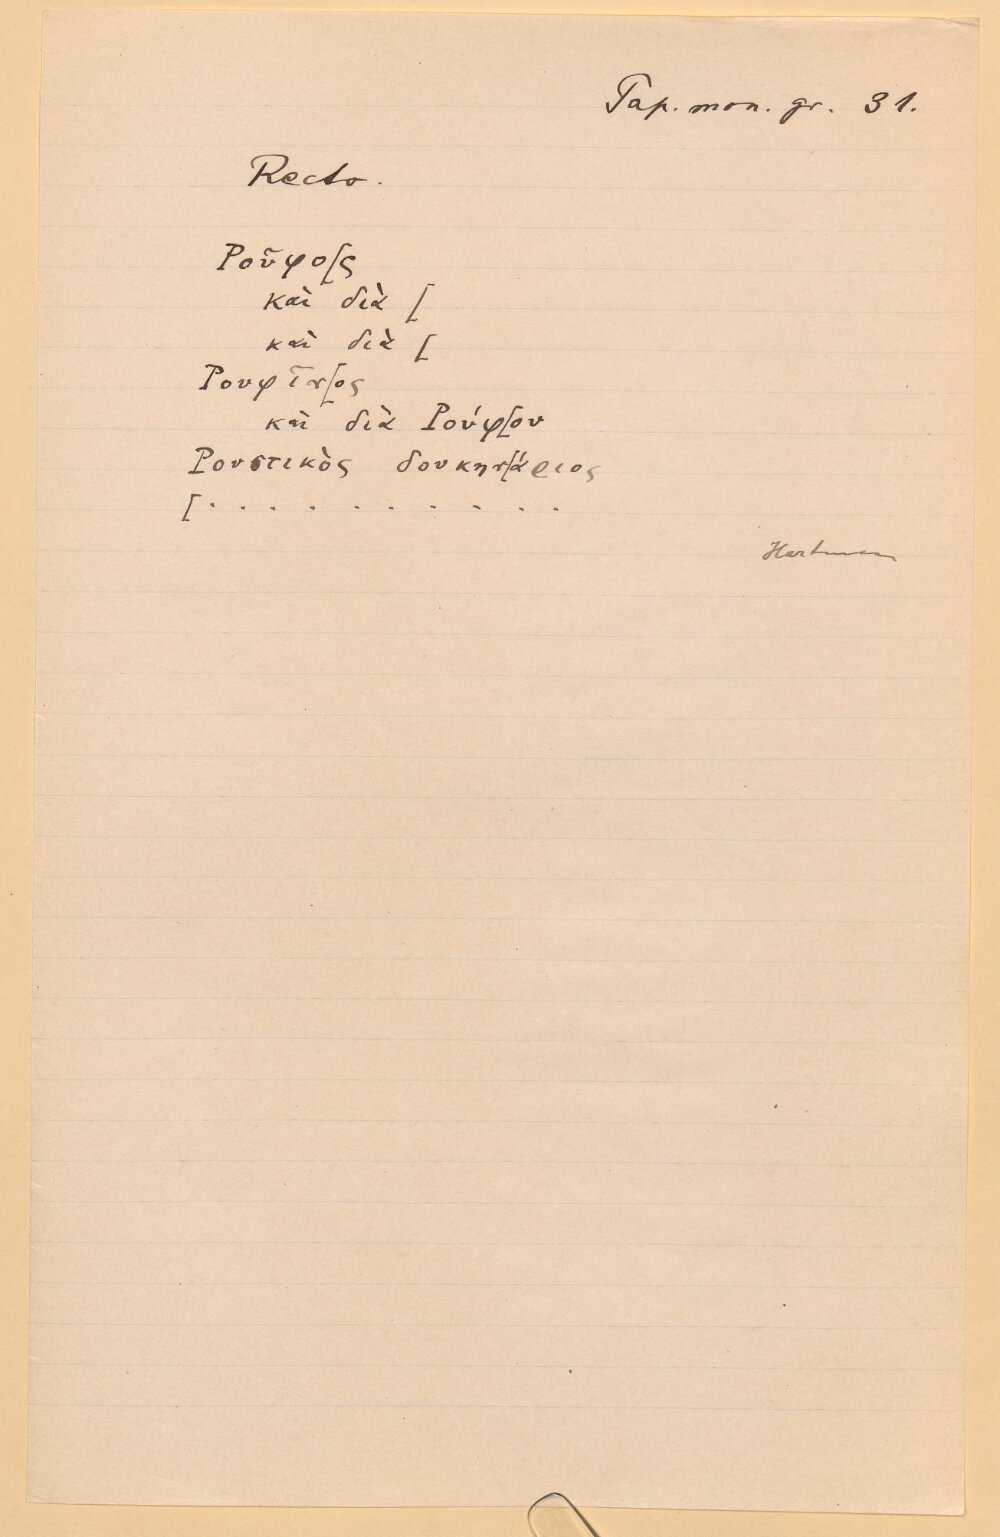 Pap. mon. gr. 31.
Recto.
Ῥοῦφο[ς
καὶ διὰ [
καὶ διὰ [
Ῥουφῖν[ος
καὶ διὰ Ῥούφ[ου
Ῥουστικὸς δουκην[άριος
[. . . . . . . . . .
Hartmann